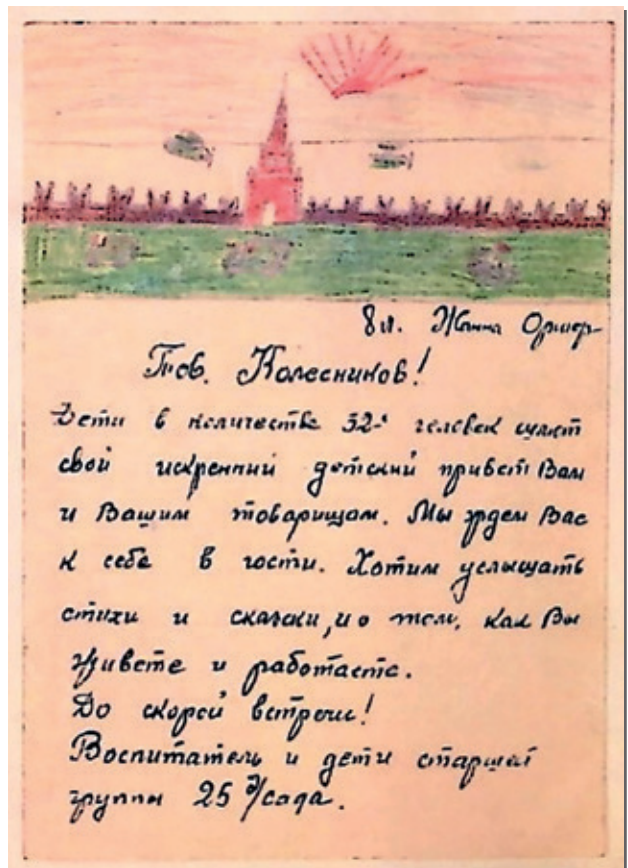 8 л. Жанна
Тов. Колесников!
Дети в количестве 32-х человек шлют
свой искренний детский привет Вам
и Вашим товарищам. Мы ждем Вас
к себе в гости. Хотим услышать
стихи и сказки, и о том, как Вы
живете и работаете.
До скорой встречи!
Воспитатель и дети старшей
группы 25 д/сада.